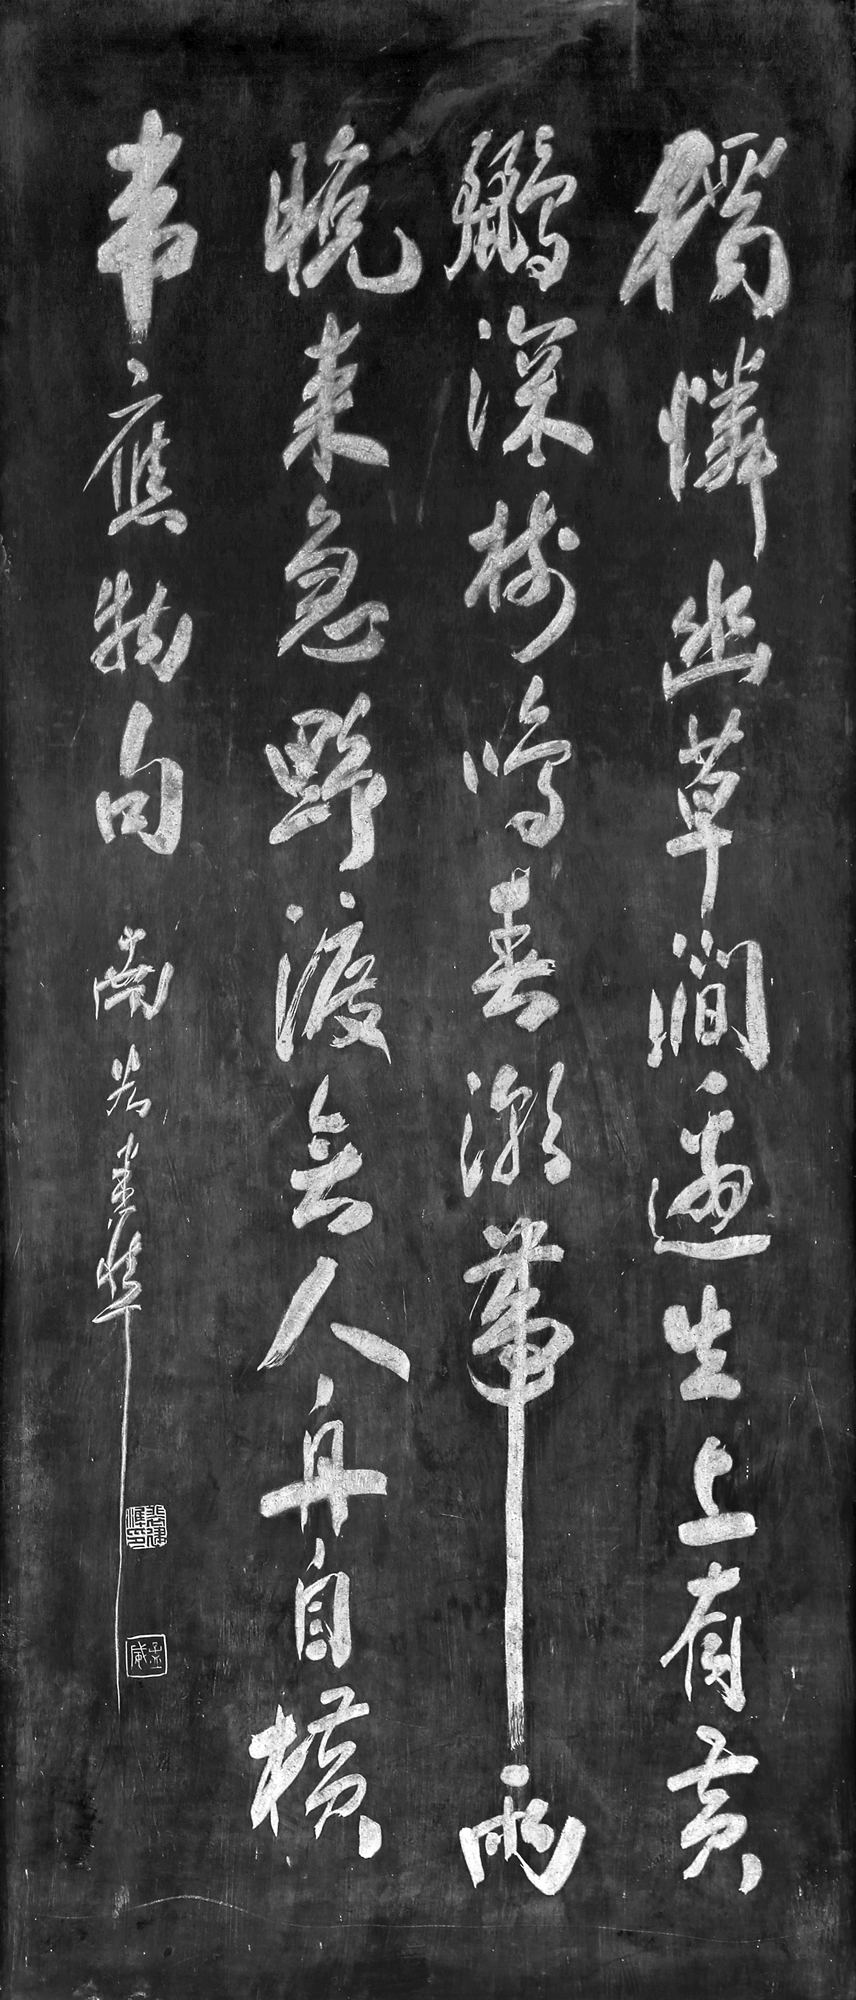 獨憐幽草澗邊生上有黃
鸝深樹鳴春潮帶雨
晚來急野渡無人舟自橫
韋應物句 南